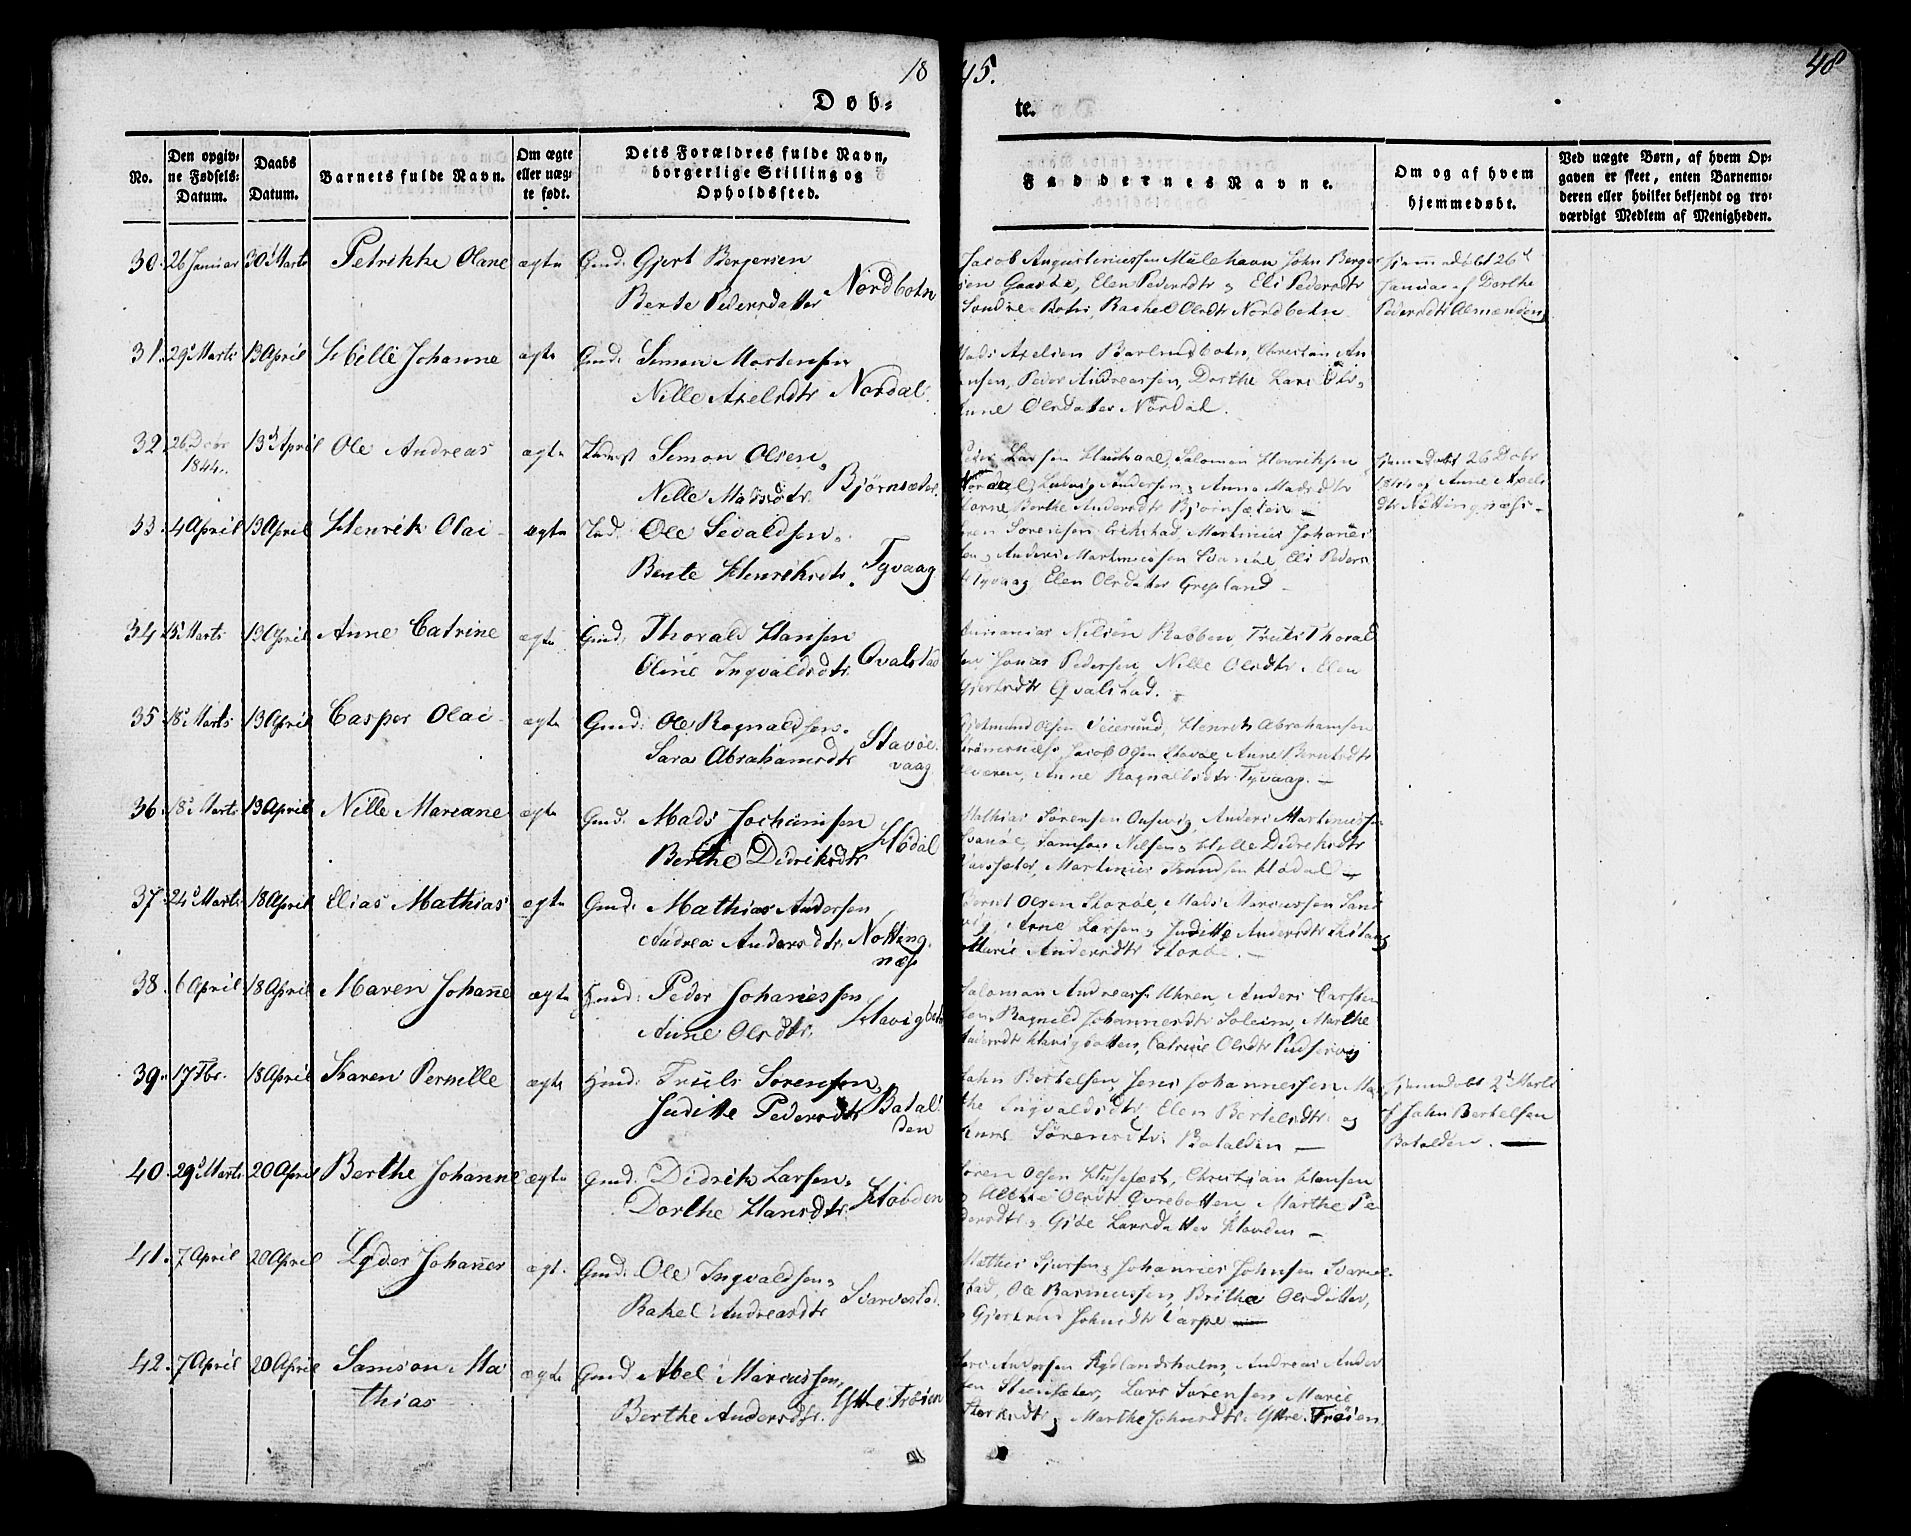 1845.
48
Døbte.
No.
Den opgivne Fødsels-Datum.
Daabs Datum.
Barnets fulde Navn.
Om ægte eller uægte født.
Dets Forældres fulde Navn, borgerlige Stilling og Opholdssted.
Faddernes Navne.
Om og af hvem hjemmedøbt.
Ved uægte Børn, af hvem Opgaven er skeet, enten Barnemoderen eller hvilket bekjendt og troværdigt Medlem af Menigheden.
30. 26 Januar 30 Marts Petrikke Olane ægte Gmd: Gjert Bergersen
Berte Pedersdatter Nordbotn
Jacob Augustinussen Mulehavn John Berger
sen Gaasøe, Elen Pedersdtr & Eli Pedersdtr
Søndre Botn, Rachel Olsdtr Nordbotn
hjemmedøbt 26
Januar af Dorthe
Pedersdtr Almenden
31. 29 Marts 13 April Sibille Johanne ægte Gmd: Simon Mortensen
Nille Axelsdtr Nordal.
Mads Axelsen Barlindbotn, Christian An
ensen, Peder Andreassen, Dorthe Larsdtr,
Anne Olsdatter Nordal.
32 26 Dcbr 1844. 13 April Ole Andreas ægte Simon Olsen
Nille Madsdtr. Bjørnsæter.
Peder Larsen Salomon Henriksen
Nordal, Ludvig Andersen, Anna Madsdtr
Berthe Andersdtr Bjørnsæter
hjemmedøbt 26 Dcbr
1844 af Anne Axels
dtr Nøttingnæss
33. 4 April 13 April Henrik Olai ægte Ole Sivaldsen
Berte Henriksdtr. Tyvaag
Søren Sørensen Erikstad Martinus Johanes
sen, Anders Martinussen Svanøe, Eli Peders
dtr Tyvaag, Elen Olsdatter Grepland
34 15 Marts 13 April Anne Catrine ægte Gmd: Thorald Hansen
Oline Ingvaldsdtr Qvalstad
Ananias Nilsen Rabben, Truls Thorald
sen Jonas Pedersen, Nille Olsdtr. Elen
Gjertsdtr Qvalstad.
35 18 Marts 13 April Casper Olai ægte Gmd: Ole Rognaldsen
Sara Abrahamsdtr Stavøe
vaag
Gjetmund Olsen Henrik Abrahamsen
Strømsnæs, Jacob Olsen Stavøe, Anne Berntsdtr
Anne Ragnaldsdtr Tyvaag.
36. 18 Marts 13 April Nille Mariane ægte Gmd. Mads Jochimsen
Berthe Didriksdtr Hødal
Mathias Sørensen Ansvig, Anders Martinussen
Svanøe, Samson Nilsen, Didriksdtr
Martinus Knudsen Hødal
37. 24 Marts 18 April Elias Mathias ægte Gmd: Mathias Andersen
Andrea Andersdtr. Nøtting
næss
Bernt Olsen Storøe, Mads Marcussen Sand
vig, Arne Larsen, Juditte Andersdtr
Marie Andersdtr Storøe.
38. 6 April 18 April Maren Johanne ægte Gmd: Peder Johanessen
Anne Olsdtr. Havigbotn
Salomon Andreass. Uhren, Anders Carsten
sen, Ragnild Johannesdtr Soleim, Marthe
Andersdtr Havigbotten, Catrine Olsdtr
39. 17 Fbr. 18 April Karen Pernille ægte Gmd: Truls Sørensen
Juditte Pedersdtr Batal
den
John Bertelsen, Jens Johannessen Mar
the Ingvaldsdtr, Elen Bertelsdtr og
Anne Sørensdtr Batalden
hjemmedøbt 2 Marts
af John Bertelsen
Batalden.
40. 29 Marts 20 April Berthe Johanne ægte Gmd: Didrik Larsen
Dorthe Hansdtr. Hovden
Søren Olsen Husefæst, Christian Hansen
Olsdtr Øvrebotten, Marthe Pe
dersdtr, Larsdatter Hovden
41. 7 April 20 April Lyder Johannes ægt. Gmd: Ole Ingvaldsen
Rakel Andreasdtr Svarvestad.
Mathis Sjursen, Johannes Johnsen Svarve
stad, Ole Rasmussen, Brithe Olsdatter,
Gjertrud Johnsdtr
42. 7 April 20 April Samson Ma
thias ægte Gmd. Abel Marcussen
Berthe Andersdtr. Ytre Trøien
Lars Andersen Rydlandsholm, Andreas Ander
sen Steinsæter, Lars Sørensen Marie
Marthe Johnsdtr. Yttre Trøien